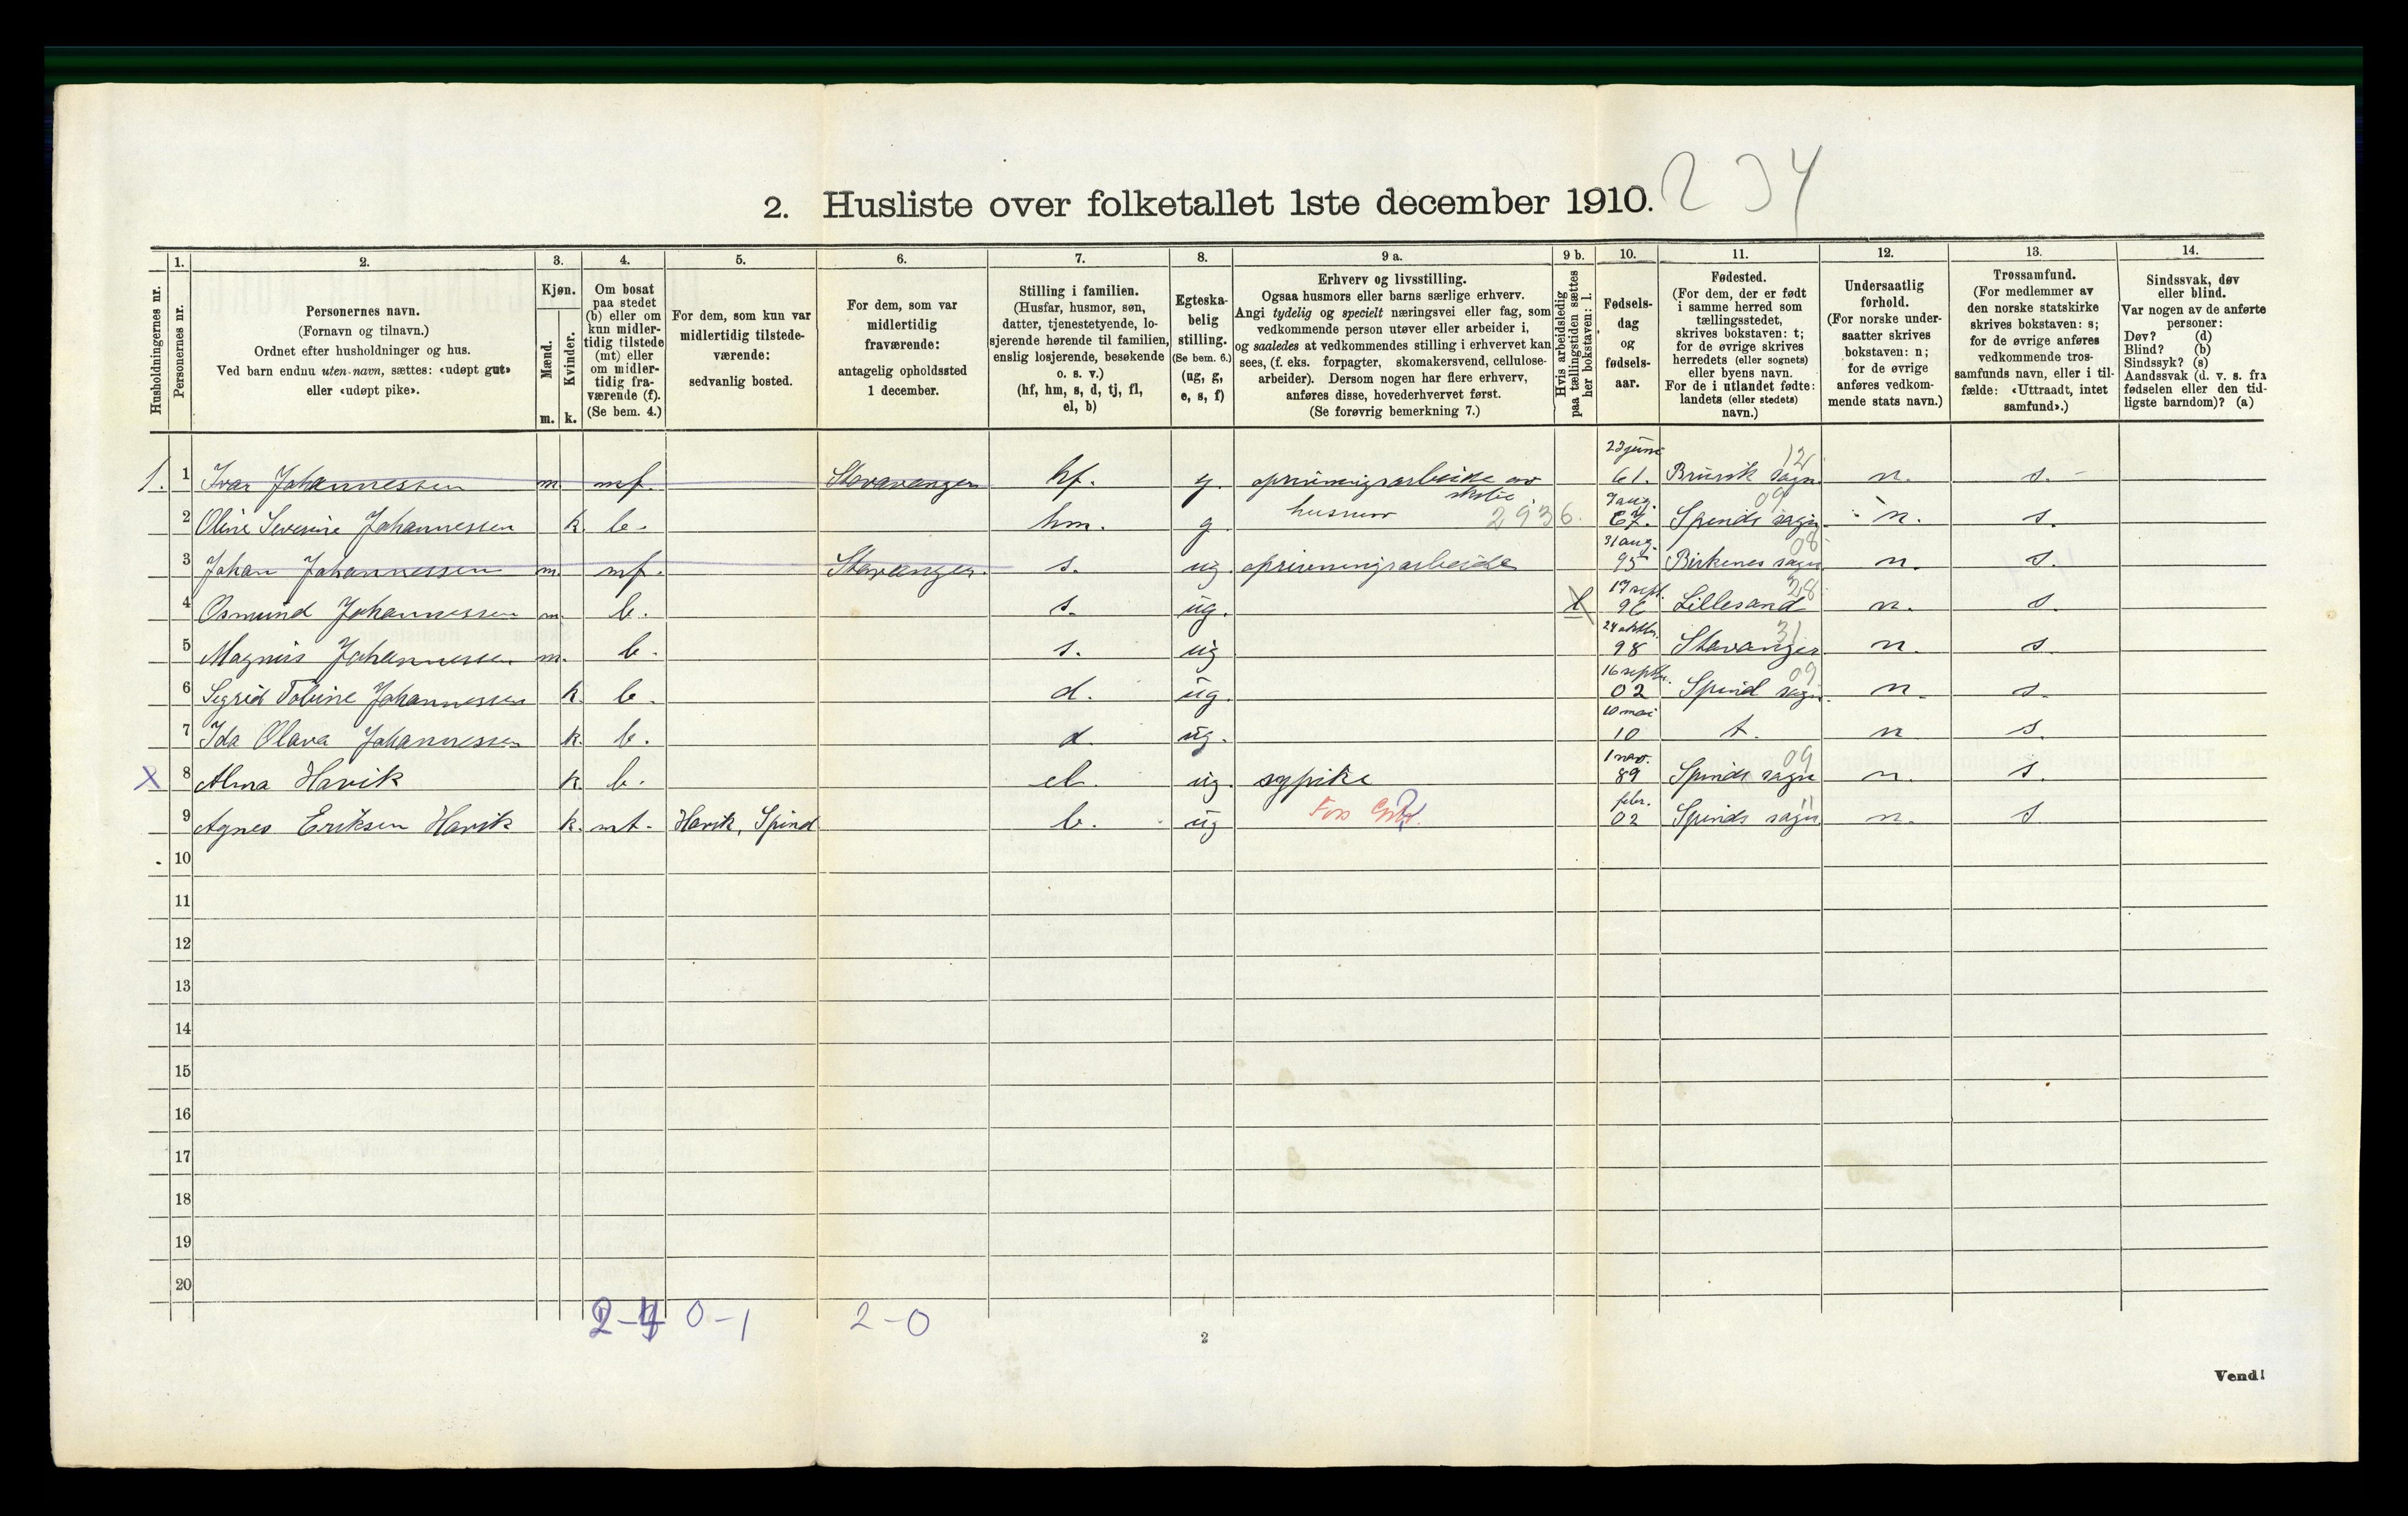 2. Husliste over folketallet 1ste december 1910. 234
Husholdningernes nr.
1. Personernes nr.
2. Personernes navn.
(Fornavn og tilnavn.)
Ordnet efter husholdninger og hus.
Ved barn endnu uten navn, sættes: «udøpt gut»
eller «udøpt pike».
3. Kjøn.
Mænd. m.
Kvinder. k.
4. Om bosat
paa stedet
(b) eller om
kun midler-
tidig tilstede
(mt) eller
om midler-
tidig fra-
værende (f).
(Se bem. 4.)
5. For dem, som kun var
midlertidig tilstede-
værende:
sedvanlig bosted.
6. For dem, som var
midlertidig
fraværende:
antagelig opholdssted
1 december.
7. Stilling i familien.
(Husfar, husmor, søn,
datter, tjenestetyende, lo-
sjerende hørende til familien,
enslig losjerende, besøkende
o. s. v.)
(hf, hm, s, d, tj, fl,
el, b)
8. Egteska-
belig
stilling.
(Se bem. 6.)
(ug, g,
e, s, f)
9 a. Erhverv og livsstilling.
Ogsaa husmors eller barns særlige erhverv.
Angi tydelig og specielt næringsvei eller fag, som
vedkommende person utøver eller arbeider i,
og saaledes at vedkommendes stilling i erhvervet kan
sees, (f. eks. forpagter, skomakersvend, cellulose-
arbeider). Dersom nogen har flere erhverv,
anføres disse, hovederhvervet først.
(Se forøvrig bemerkning 7.)
9 b. Hvis arbeidsledig
paa tællingstiden sættes
her bokstaven: l.
10. Fødsels-
dag
og
fødsels-
aar.
11. Fødested.
(For dem, der er født
i samme herred som
tællingsstedet,
skrives bokstaven: t;
for de øvrige skrives
herredets (eller sognets)
eller byens navn.
For de i utlandet fødte:
landets (eller stedets)
navn.)
12. Undersaatlig
forhold.
(For norske under-
saatter skrives
bokstaven: n;
for de øvrige
anføres vedkom-
mende stats navn.)
13. Trossamfund.
(For medlemmer av
den norske statskirke
skrives bokstaven: s;
for de øvrige anføres
vedkommende tros-
samfunds navn, eller i til-
fælde: «Uttraadt, intet
samfund».)
14. Sindssvak, døv
eller blind.
Var nogen av de anførte
personer:
Døv? (d)
Blind? (b)
Sindssyk? (s)
Aandssvak (d. v. s. fra
fødselen eller den tid-
ligste barndom)? (a)
1. 1 Ivar Johannessen m. mf. Stavanger hf. g. 61. 12 n. s.
2 Oline Severine Johannessen k. b. hm. g. husmor 2936. 7 aug. 67. Spinds sogn 09 n. s.
3 Johan Johannessen m. mf. Stavanger. s. ug. oprivningsarbeide 31 aug. 95 Birkenes sogn 08 n. s.
4 Osmund Johannessen m. b. s. ug. l 19 sept. 96 Lillesand 28 n. s.
5 Magnus Johannessen m. b. s. ug 24 oktbr. 98 Stavanger 31 n. s.
6 Sigrid Tobine Johannessen k. b. d. ug. 16 septbr. 02 Spind sogn 09 n. s.
7 Ida Olava Johannessen k. b. d. ug. 10 mai 10 t. n s.
X 8 Alma Havik k. b. el. ug. sypike 1 nov. 89 Spinds sogn 09 n. s.
9 Agnes Eriksen Havik k. mt. Havik, Spind b. ug febr. 02 Spinds sogn 11 n. s
10
11
12
13
14
15
16
17
18
19
20
2-4 0-1 2-0
2
Vend!